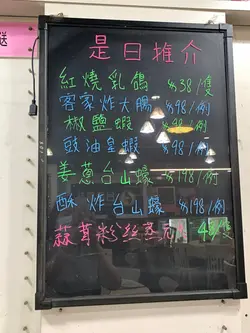 是日推介
紅燒乳鴿 $38/隻
客家炸大腸 $98/例
椒鹽蝦 $98/例
豉油皇蝦 $98/例
姜蔥台山蠔 $181/例
酥炸台山蠔 $198/例
蒜茸粉絲蒸 4隻